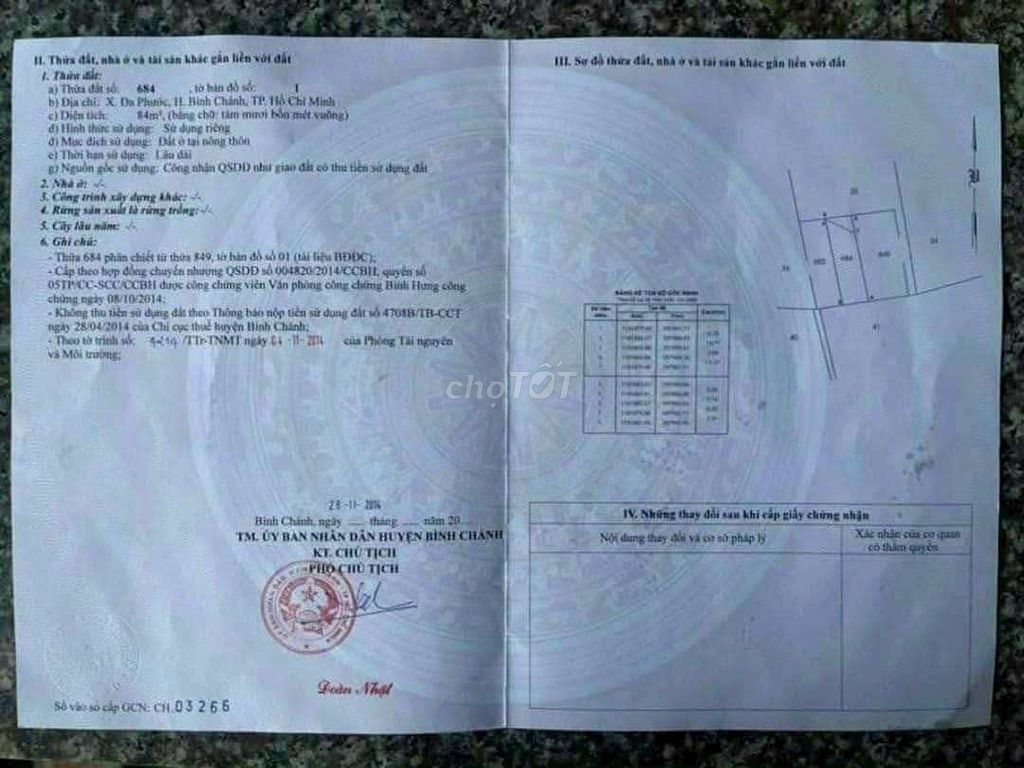 II. Thửa đất, nhà ở và tài sản khác gắn liền với đất
1. Thửa đất:
a) Thửa đất số: 684 , tờ bản đồ số: 1
b) Địa chỉ: X. Đa Phước, H. Bình Chánh, TP. Hồ Chí Minh
c) Diện tích: 84m², (bằng chữ: tám mươi bốn mét vuông)
d) Hình thức sử dụng: Sử dụng riêng
đ) Mục đích sử dụng: Đất ở tại nông thôn
e) Thời hạn sử dụng: Lâu dài
g) Nguồn gốc sử dụng: Công nhận QSDĐ như giao đất có thu tiền sử dụng đất
2. Nhà ở: -/-
3. Công trình xây dựng khác: -/-
4. Rừng sản xuất là rừng trồng: -/-
5. Cây lâu năm: -/-
6. Ghi chú:
- Thửa 684 phân chiết từ thửa 849, tờ bản đồ số 01 (tài liệu BĐĐC);
- Cấp theo hợp đồng chuyển nhượng QSDĐ số 004820/2014/CCBH, quyển số
05TP/CC-SCC/CCBH được công chứng viên Văn phòng công chứng Bình Hưng công
chứng ngày 08/10/2014;
- Không thu tiền sử dụng đất theo Thông báo nộp tiền sử dụng đất số 4708B/TB-CCT
ngày 28/04/2014 của Chi cục thuế huyện Bình Chánh;
- Theo tờ trình số: /TTr-TNMT ngày 04 -11- 2014 của Phòng Tài nguyên
và Môi trường;
28 -11- 2014
Bình Chánh, ngày ..... tháng ..... năm 20...
TM. ỦY BAN NHÂN DÂN HUYỆN BÌNH CHÁNH
KT. CHỦ TỊCH
PHÓ CHỦ TỊCH
Đoàn Nhật
Số vào sổ cấp GCN: CH 03266
III. Sơ đồ thửa đất, nhà ở và tài sản khác gắn liền với đất
B
684
BẢNG KÊ TỌA ĐỘ GÓC RANH
chợTỐT
IV. Những thay đổi sau khi cấp giấy chứng nhận
Nội dung thay đổi và cơ sở pháp lý
Xác nhận của cơ quan
có thẩm quyền